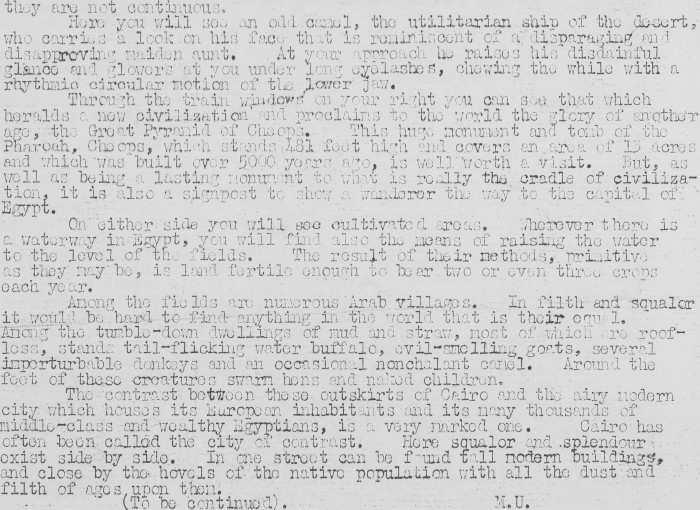 they are not continuous.
Here you will see an odd camel, the utilitarian ship of the desert,
who carries a look on his face that is reminiscent of a disparaging and
disapproving maiden aunt. At your approach he raises his disdainful
glance and glowers at you under long eyelashes, chewing the while with a
rhythmic circular motion of the lower jaw.
Through the train windows on your right you can see that which
heralds a new civilization and proclaims to the world the glory of another
age, the Great Pyramid of Cheops. This huge monument and tomb of the
Pharoah, Cheops, which stands 481 feet high and covers an area of 13 acres
and which was built over 5000 years ago, is well worth a visit. But, as
well as being a lasting monument to what is really the cradle of civiliza-
tion, it is also a signpost to show a wanderer the way to the capital of
Egypt.
On either side you will see cultivated areas. Wherever there is
a waterway in Egypt, you will find also the means of raising the water
to the level of the fields. The result of their methods, primitive
as they may be, is land fertile enough to bear two or even three crops
each year.
Among the fields are numerous Arab villages. In filth and squalor
it would be hard to find anything in the world that is their equal.
Among the tumble-down dwellings of mud and straw, most of which are roof-
less, stands tail-flicking water buffalo, evil-smelling goats, several
imperturbable donkeys and an occasional nonchalant camel. Around the
feet of these creatures swarm hens and naked children.
The contrast between these outskirts of Cairo and the airy modern
city which houses its European inhabitants and its many thousands of
middle-class and wealthy Egyptians, is a very marked one. Cairo has
often been called the city of contrast. Here squalor and splendour
exist side by side. In one street can be found tall modern buildings,
and close by the hovels of the native population with all the dust and
filth of ages upon them.
(To be continued). M.U.